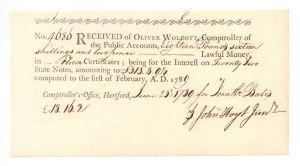 No 9686 RECEIVED OF OLIVER WOLCOTT, Comptroller of
the Public Accounts, Eighteen Pounds sixteen
shillings and two pence Lawful Money,
in Certificates; being for the Interest on Twenty two
State Notes, amounting to
computed to the first of February, A.D. 1789
Comptroller's-Office, Hartford, June 25th 1789 for
£ 18.16.2 John Hoyt Junr